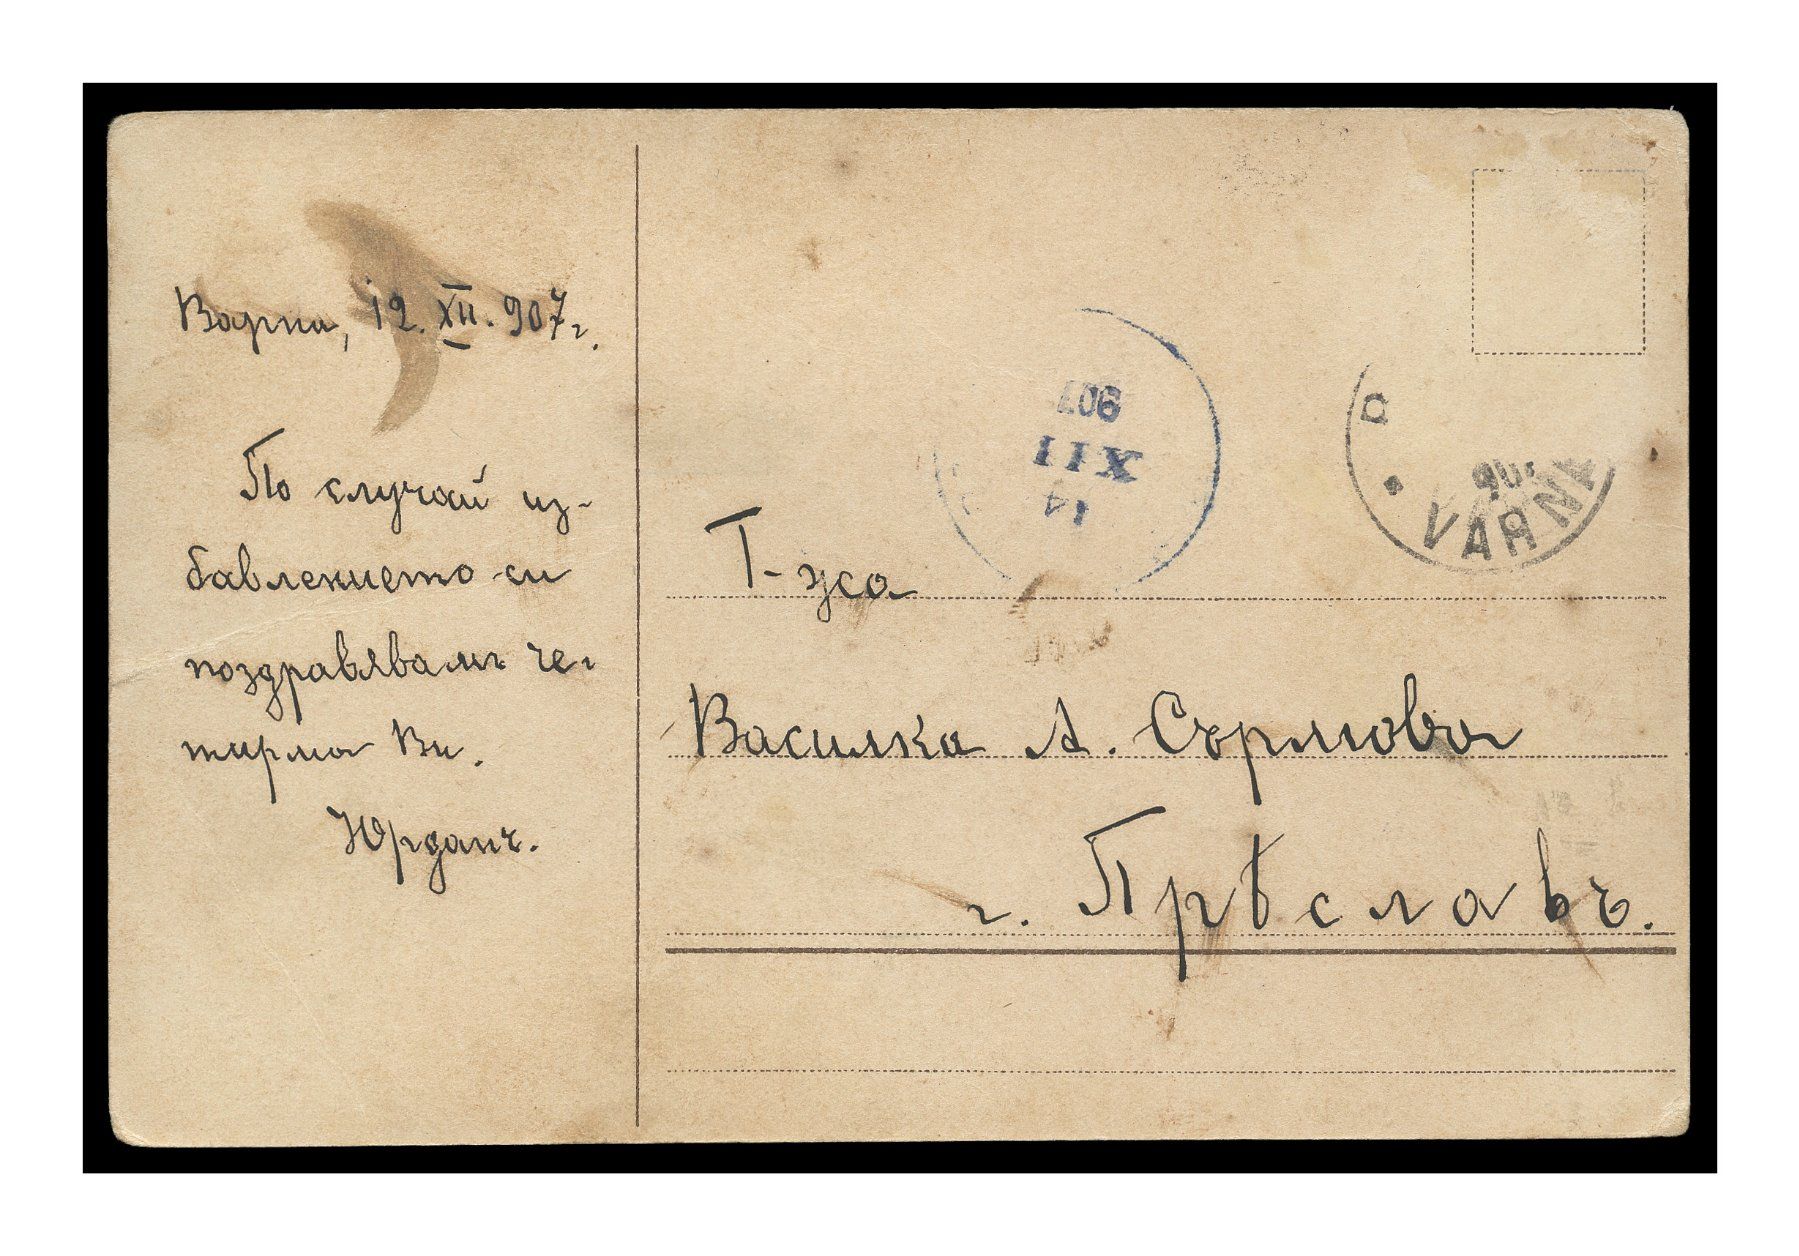 Варна, 12. XII. 907 г.
По случай из-
бавлението си
поздравявамъ че-
тирма Ви.
Юрданъ.
907
XII
14
VARNA
Г-жа
Василка А. Сърмова
г. Прѣславъ.